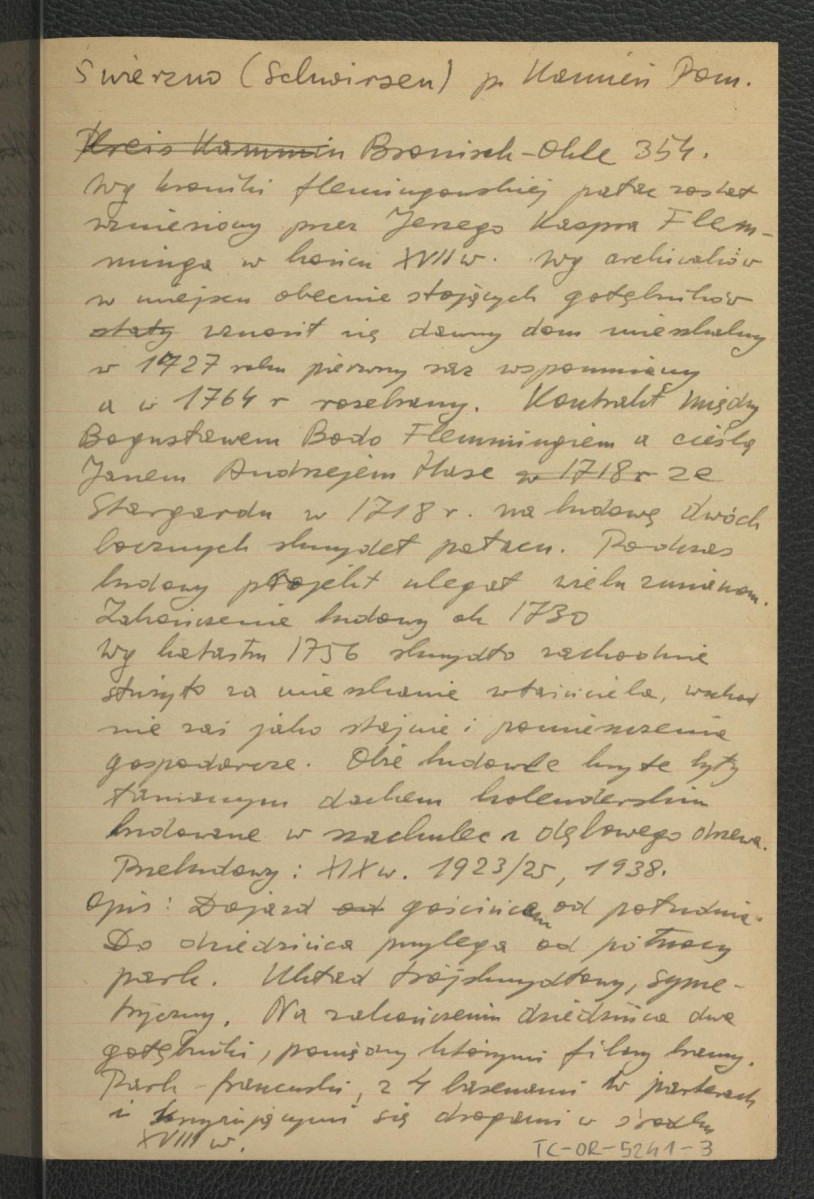 Świerzno (Schwirsen) p. Kamień Pom.
Kreis Kammin Bronisch-Ohle 354.
Wg kroniki flemingowskiej pałac został
wzniesiony przez Jerzego Kaspra Flem-
minga w końcu XVII w. Wg archiwaliów
w miejscu obecnie stojących gołębników
stały wznosił się dawny dom mieszkalny
w 1727 roku pierwszy raz wspomniany
a w 1764 r rozebrany. Kontrakt między
Bogusławem Bodo Flemmingiem a cieślą
Janem Andrzejem Hase w 1718 r ze
Stargardu w 1718 r. na budowę dwóch
bocznych skrzydeł pałacu. Podczas
budowy projekt ulegał wielu zmianom.
Zakończenie budowy ok 1730
Wg katastru 1756 skrzydło zachodnie
służyło za mieszkanie właściciela, wschod
nie zaś jako stajnie i pomieszczenia
gospodarcze. Obie budowle kryte były
łamanym dachem holenderskim
budowane w szachulec z dębowego drzewa.
Przebudowy: XIX w. 1923/25, 1938.
Opis: Dojazd od gościńcem od południa.
Do dziedzińca przylega od północy
park. Układ trójskrzydłowy, syme-
tryczny. Na zakończeniu dziedzińca dwa
gołębniki, pomiędzy którymi filary bramy.
Park francuski, z 4 basenami w parterach
i krzyżującymi się drogami w środku
XVIII w.
TC-OR-5241-3